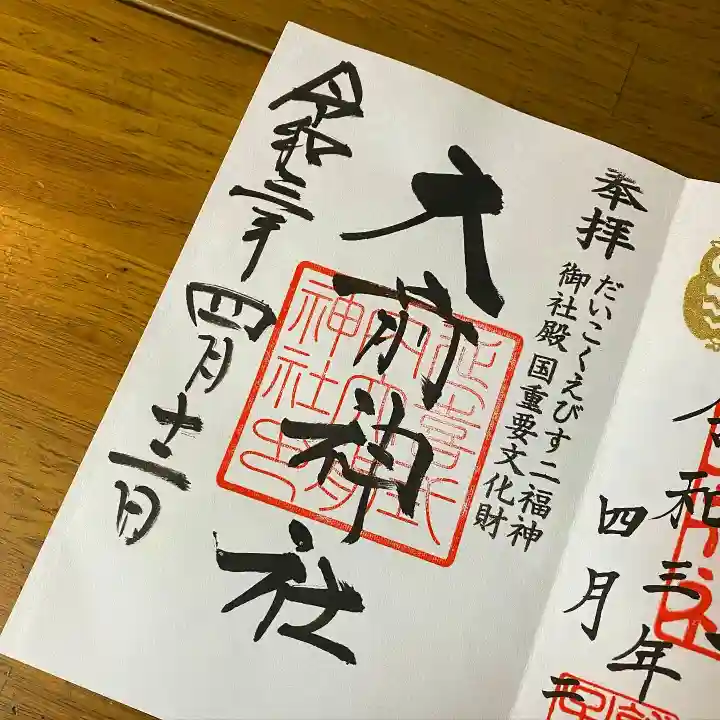 奉拝
だいこくえびす二福神
御社殿国重要文化財
大前神社
延喜式内大前神社印
令和三年四月十二日
令和三年
四月二